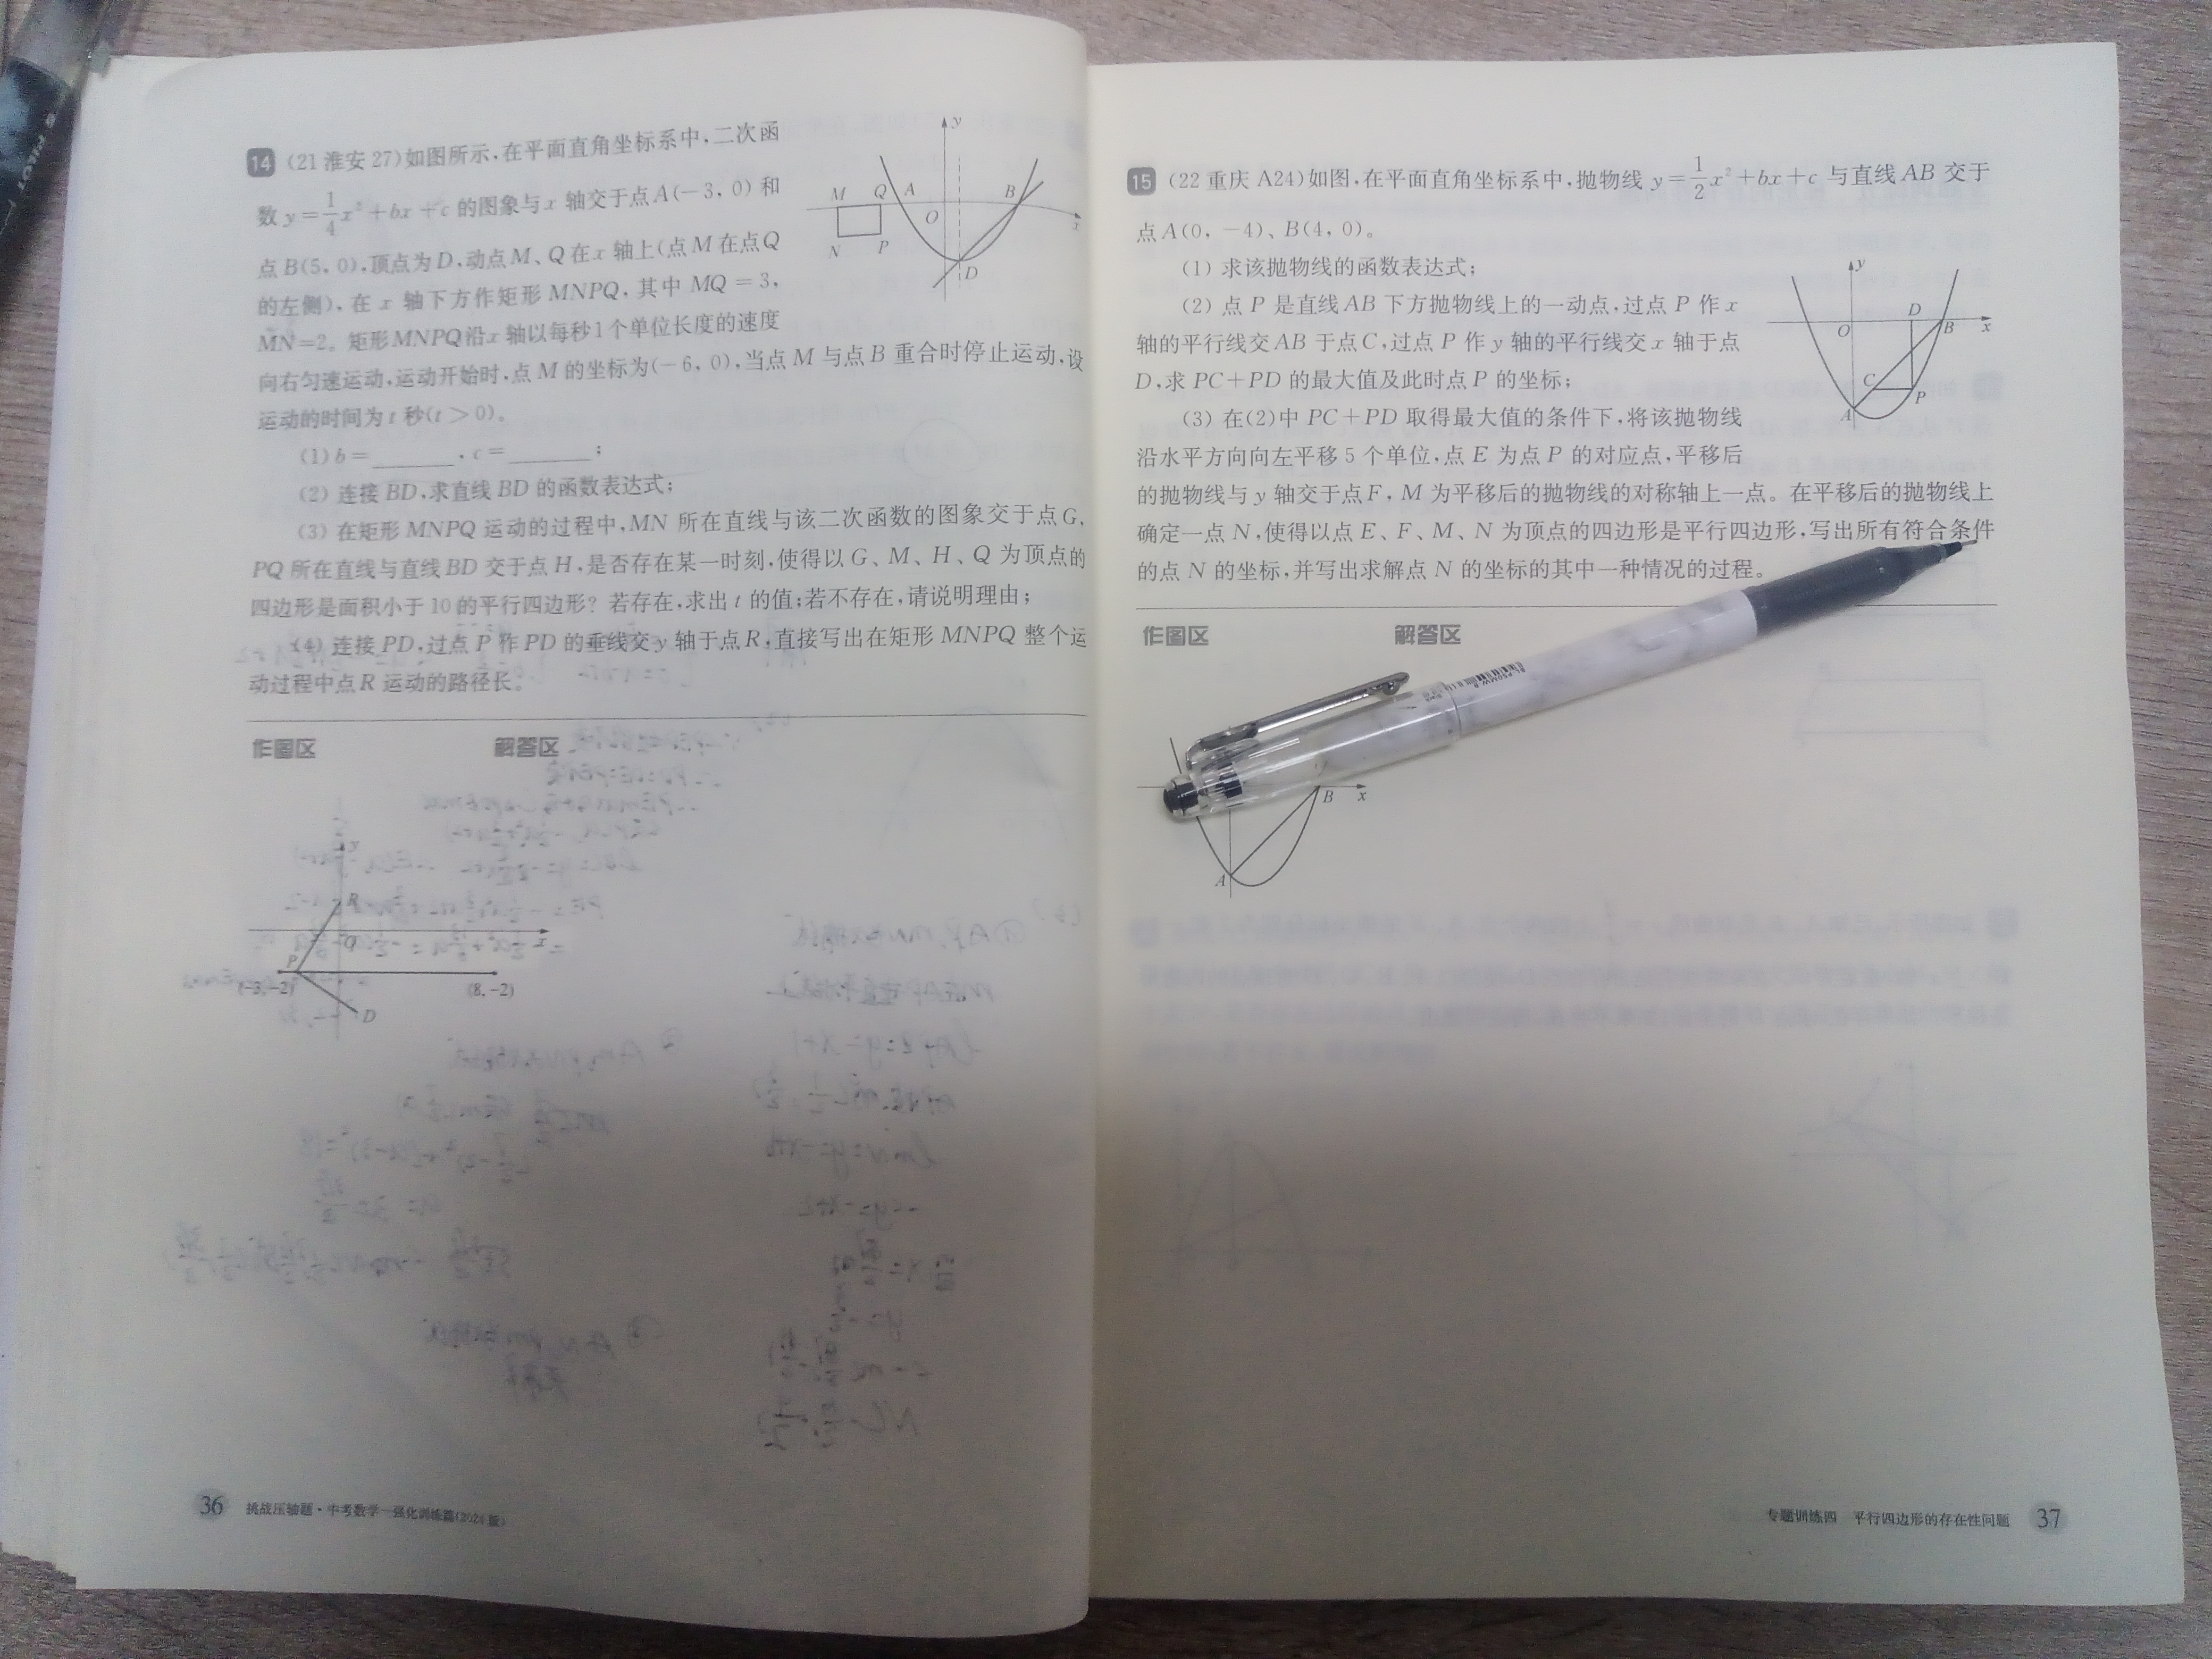 14 (21 淮安 27)如图所示,在平面直角坐标系中,二次函
数 y=1/4x²+bx+c 的图象与 x 轴交于点 A(-3, 0) 和
点 B(5, 0),顶点为 D,动点 M、Q 在 x 轴上(点 M 在点 Q
的左侧),在 x 轴下方作矩形 MNPQ,其中 MQ=3,
MN=2。矩形 MNPQ 沿 x 轴以每秒 1 个单位长度的速度
向右匀速运动,运动开始时,点 M 的坐标为(-6, 0),当点 M 与点 B 重合时停止运动,设
运动的时间为 t 秒(t>0)。
(1) b=______, c=______;
(2) 连接 BD,求直线 BD 的函数表达式;
(3) 在矩形 MNPQ 运动的过程中,MN 所在直线与该二次函数的图象交于点 G,
PQ 所在直线与直线 BD 交于点 H,是否存在某一时刻,使得以 G、M、H、Q 为顶点的
四边形是面积小于 10 的平行四边形?若存在,求出 t 的值;若不存在,请说明理由;
(4) 连接 PD,过点 P 作 PD 的垂线交 y 轴于点 R,直接写出在矩形 MNPQ 整个运
动过程中点 R 运动的路径长。
y
M Q A B
O x
N P D
作图区 解答区
R
O x
P
(-3,-2) (8,-2)
D
36 挑战压轴题·中考数学—强化训练篇(2024版)
15 (22 重庆 A24)如图,在平面直角坐标系中,抛物线 y=1/2x²+bx+c 与直线 AB 交于
点 A(0, -4)、B(4, 0)。
(1) 求该抛物线的函数表达式;
(2) 点 P 是直线 AB 下方抛物线上的一动点,过点 P 作 x
轴的平行线交 AB 于点 C,过点 P 作 y 轴的平行线交 x 轴于点
D,求 PC+PD 的最大值及此时点 P 的坐标;
(3) 在(2)中 PC+PD 取得最大值的条件下,将该抛物线
沿水平方向向左平移 5 个单位,点 E 为点 P 的对应点,平移后
的抛物线与 y 轴交于点 F,M 为平移后的抛物线的对称轴上一点。在平移后的抛物线上
确定一点 N,使得以点 E、F、M、N 为顶点的四边形是平行四边形,写出所有符合条件
的点 N 的坐标,并写出求解点 N 的坐标的其中一种情况的过程。
y
D
O B x
C
P
A
作图区 解答区
B x
A
专题训练四 平行四边形的存在性问题 37